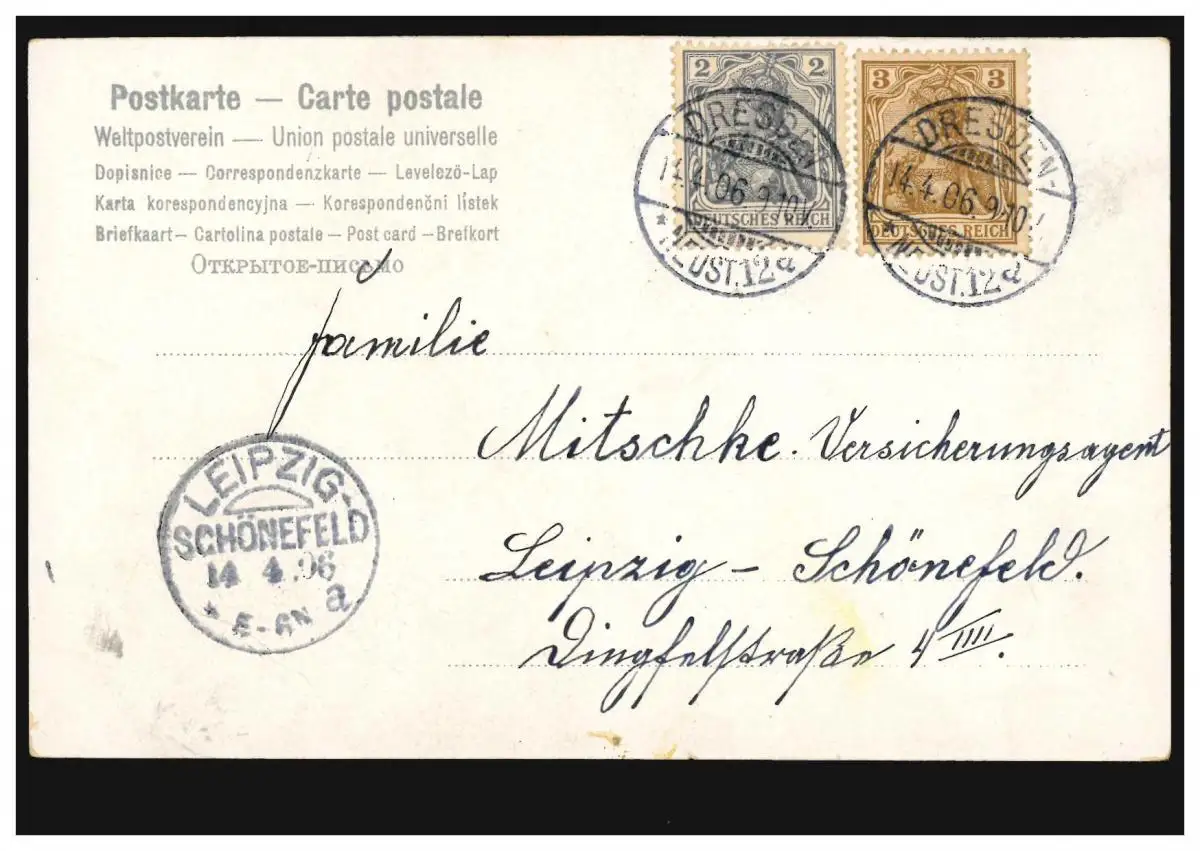 Postkarte — Carte postale
Weltpostverein — Union postale universelle
Dopisnice — Correspondenzkarte — Levelező-Lap
Karta korespondencyjna — Korespondenčni listek
Briefkaart — Cartolina postale — Post card — Brefkort
Открытое-письмо
2 2
DEUTSCHES REICH
3 3
DEUTSCHES REICH
DRESDEN-
14.4.06.9-10V.
* NEUST.12a
DRESDEN-
14.4.06.9-10V.
* NEUST.12a
Familie
Mitschke. Versicherungsagent
Leipzig — Schönefeld.
Dingfelstraße 4 IIII.
LEIPZIG-
SCHÖNEFELD
14 4.06
* 5-6N a